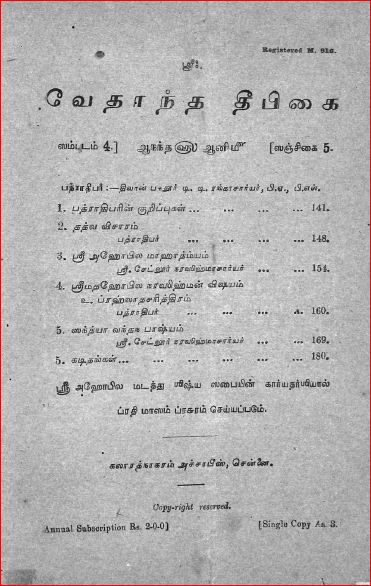 Registered M. 916.
ஸ்ரீ:
வேதாந்த தீபிகை
ஸம்புடம் 4.] ஆநந்த ௵ ஆனி ௴ [ஸஞ்சிகை 5.
பத்ராதிபர்:—திவான் பஹதூர் டி. டி. ரங்காசார்யர், பி.ஏ., பி.எல்.
1. பத்ராதிபரின் குறிப்புகள் ... ... ... ... 141.
2. தத்வ விசாரம்
பத்ராதிபர் ... ... ... ... 148.
3. ஸ்ரீ அஹோபில மாஹாத்ம்யம்
ஸ்ரீ. சேட்லூர் நரஸிஹ்மாசார்யர் ... ... 154.
4. ஸ்ரீமதஹோபில நரஸிஹ்மன் விஷயம்
உ. ப்ரஹ்லாதசரித்திரம்
பத்ராதிபர் ... ... ... 160.
5. ஸந்த்யா வந்தந பாஷ்யம்
ஸ்ரீ. சேட்லூர் நரஸிஹ்மாசார்யர் ... ... 169.
5. கடிதங்கள் ... ... ... ... ... 180.
ஸ்ரீ அஹோபில மடத்து ஶிஷ்ய ஸபையின் கார்யதர்ஶியால்
ப்ரதி மாஸம் ப்ரசுரம் செய்யப்படும்.
கலாரத்நாகரம் அச்சாபீஸ், சென்னை.
Copy-right reserved.
Annual Subscription Rs. 2-0-0] [Single Copy As. 3.